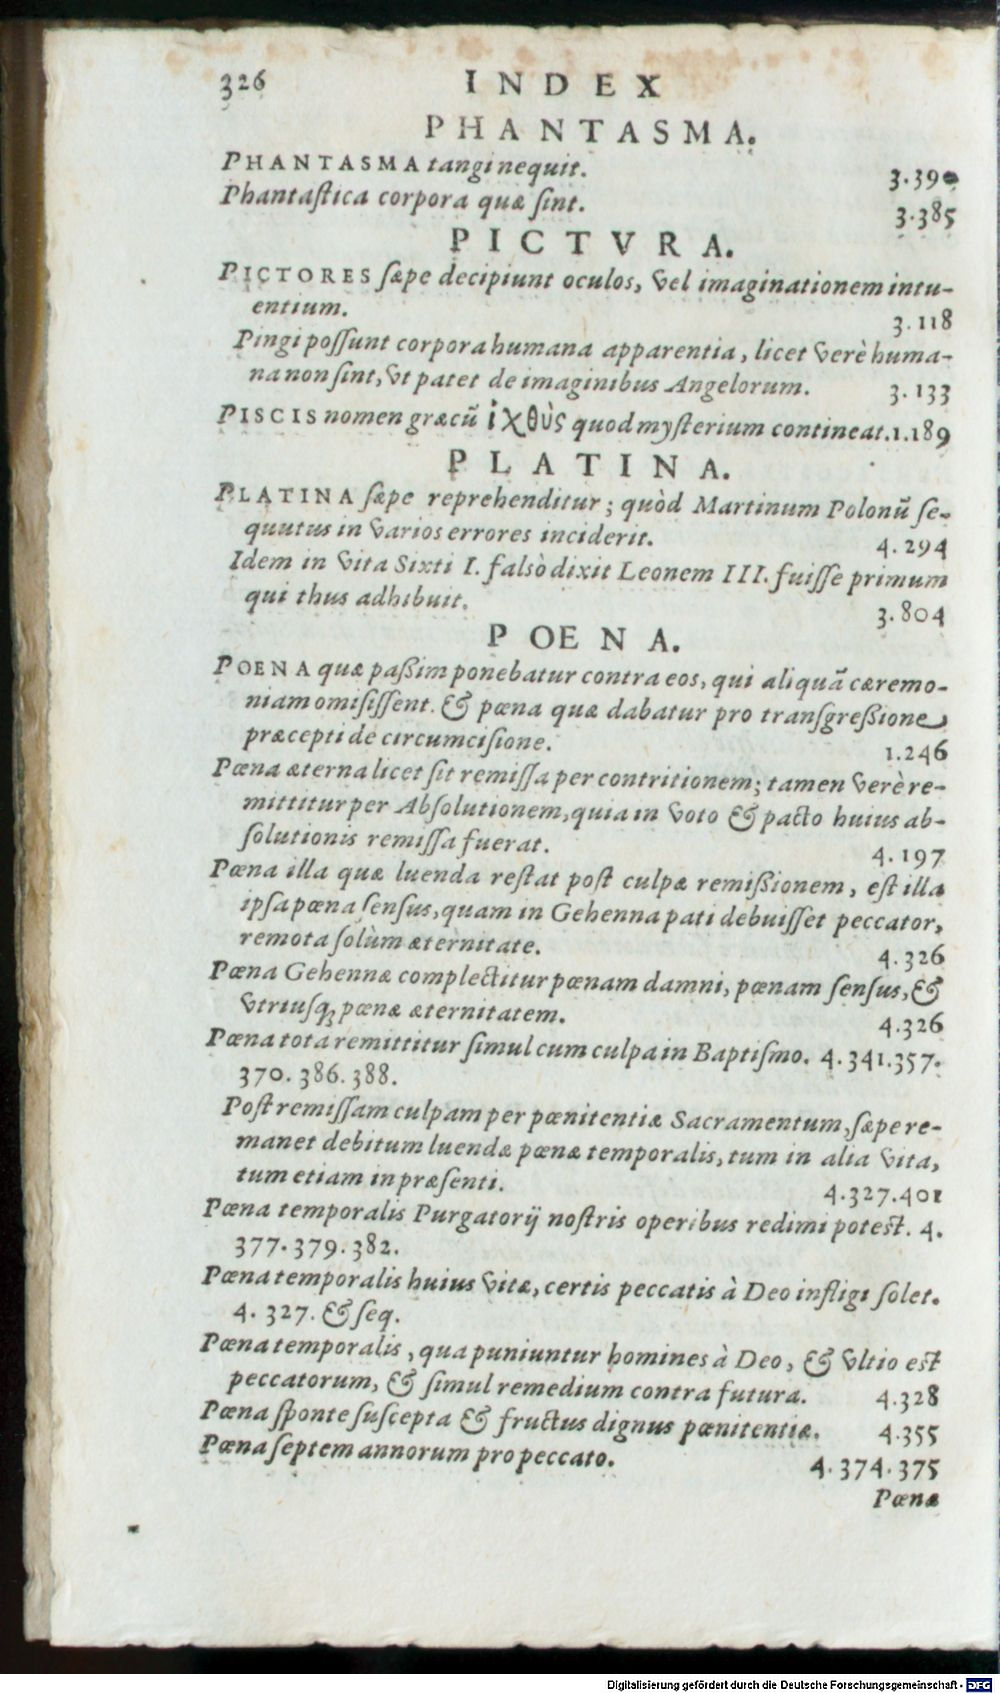 326 INDEX
PHANTASMA.
PHANTASMA tangi nequit. 3.390
Phantastica corpora quæ sint. 3.385
PICTVRA.
PICTORES sæpe decipiunt oculos, vel imaginationem intu-
entium. 3.118
Pingi possunt corpora humana apparentia, licet verè huma-
na non sint, vt patet de imaginibus Angelorum. 3.133
PISCIS nomen græcũ ἰχθὺς quod mysterium contineat. 1.189
PLATINA.
PLATINA sæpe reprehenditur; quòd Martinum Polonũ se-
quutus in varios errores inciderit. 4.294
Idem in vita Sixti I. falsò dixit Leonem III. fuisse primum
qui thus adhibuit. 3.804
POENA.
POENA quæ paßim ponebatur contra eos, qui aliquã cæremo-
niam omisissent. & pœna quæ dabatur pro transgreßione
præcepti de circumcisione. 1.246
Pœna æterna licet sit remissa per contritionem; tamen verè re-
mittitur per Absolutionem, quia in voto & pacto huius ab-
solutionis remissa fuerat. 4.197
Pœna illa quæ luenda restat post culpæ remißionem, est illa
ipsa pœna sensus, quam in Gehenna pati debuisset peccator,
remota solùm æternitate. 4.326
Pœna Gehennæ complectitur pœnam damni, pœnam sensus, &
vtriusq; pœnæ æternitatem. 4.326
Pœna tota remittitur simul cum culpa in Baptismo. 4.341.357.
370.386.388.
Post remissam culpam per pœnitentiæ Sacramentum, sæpe re-
manet debitum luendæ pœnæ temporalis, tum in alia vita,
tum etiam in præsenti. 4.327.401
Pœna temporalis Purgatorij nostris operibus redimi potest. 4.
377.379.382.
Pœna temporalis huius vitæ, certis peccatis à Deo infligi solet.
4.327. & seq.
Pœna temporalis, qua puniuntur homines à Deo, & vltio est
peccatorum, & simul remedium contra futura. 4.328
Pœna sponte suscepta & fructus dignus pœnitentiæ. 4.355
Pœna septem annorum pro peccato. 4.374.375
Pœnæ
Digitalisierung gefördert durch die Deutsche Forschungsgemeinschaft - DFG